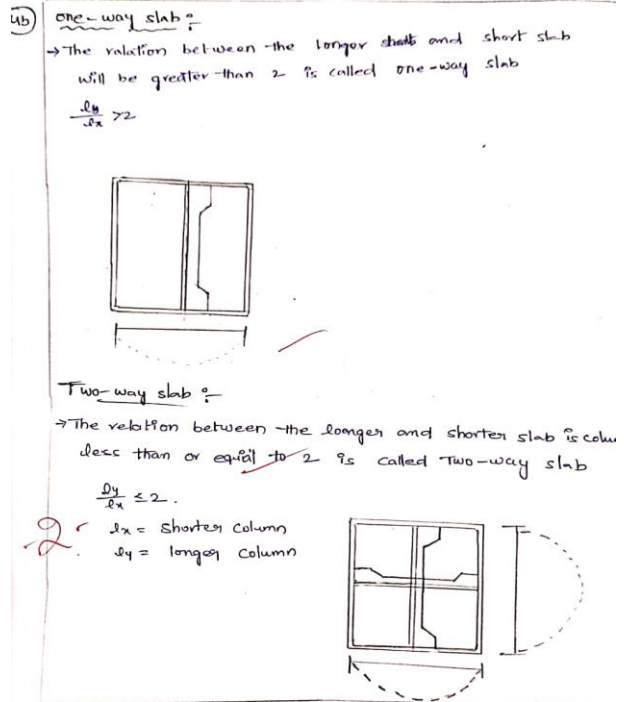 4b) one-way slab :-
→ The ralation between the longer and short slab
will be greater than 2 is called one-way slab
ly/lx >2
Two-way slab :-
→ The relation between the loonger and shorter slab is colu
less than or equal to 2 is called Two-way slab
ly/lx ≤ 2.
2
lx = shorter column
ly = longer column